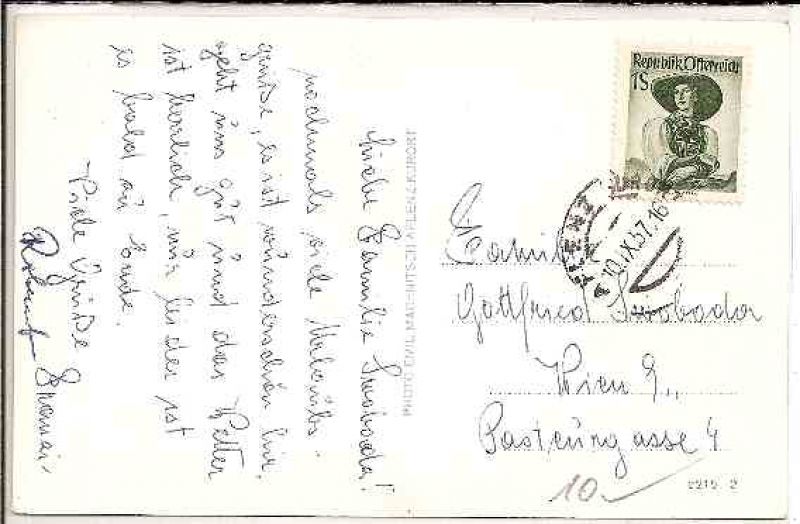 Liebe Familie Swoboda!
nochmals viele Urlaubs-
grüße, es ist wunderschön hier,
geht uns gut und das Wetter
ist herrlich, nur leider ist
es bald zu Ende.
Viele Grüße
PHOTO EMIL
KURORT
Republik Österreich
1S
10.IX.57.16
Familie
Gottfried Swoboda
Wien 9.,
Pasteurgasse 4
10.-
2